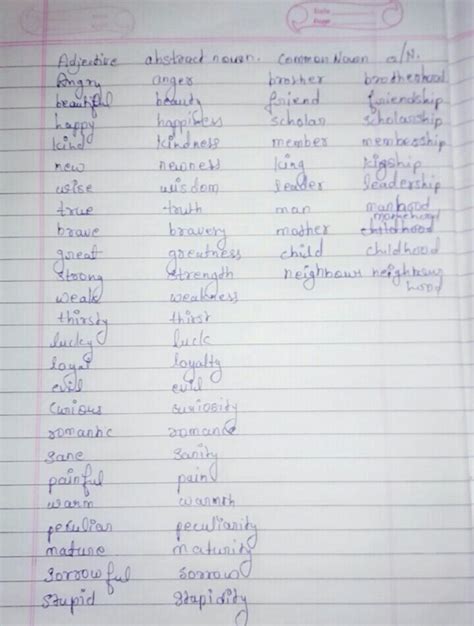 Date
Page
Adjective abstract noun. Common Noun a/N.
Angry anger brother brotherhood
beautiful beauty friend friendship
happy happiness scholar scholarship
kind kindness member membership
new newness king kigship
wise wisdom leader leadership
true truth man manhood
brave bravery mother motherhood
great greatness child childhood
strong strength neighbour neighbour
hood
weak weakness
thirsty thirst
lucky luck
loyal loyalty
evil evil
Curious curiosity
romantic romance
sane sanity
painful pain
warm warmth
peculiar peculiarity
mature maturity
sorrowful sorrow
stupid stupidity